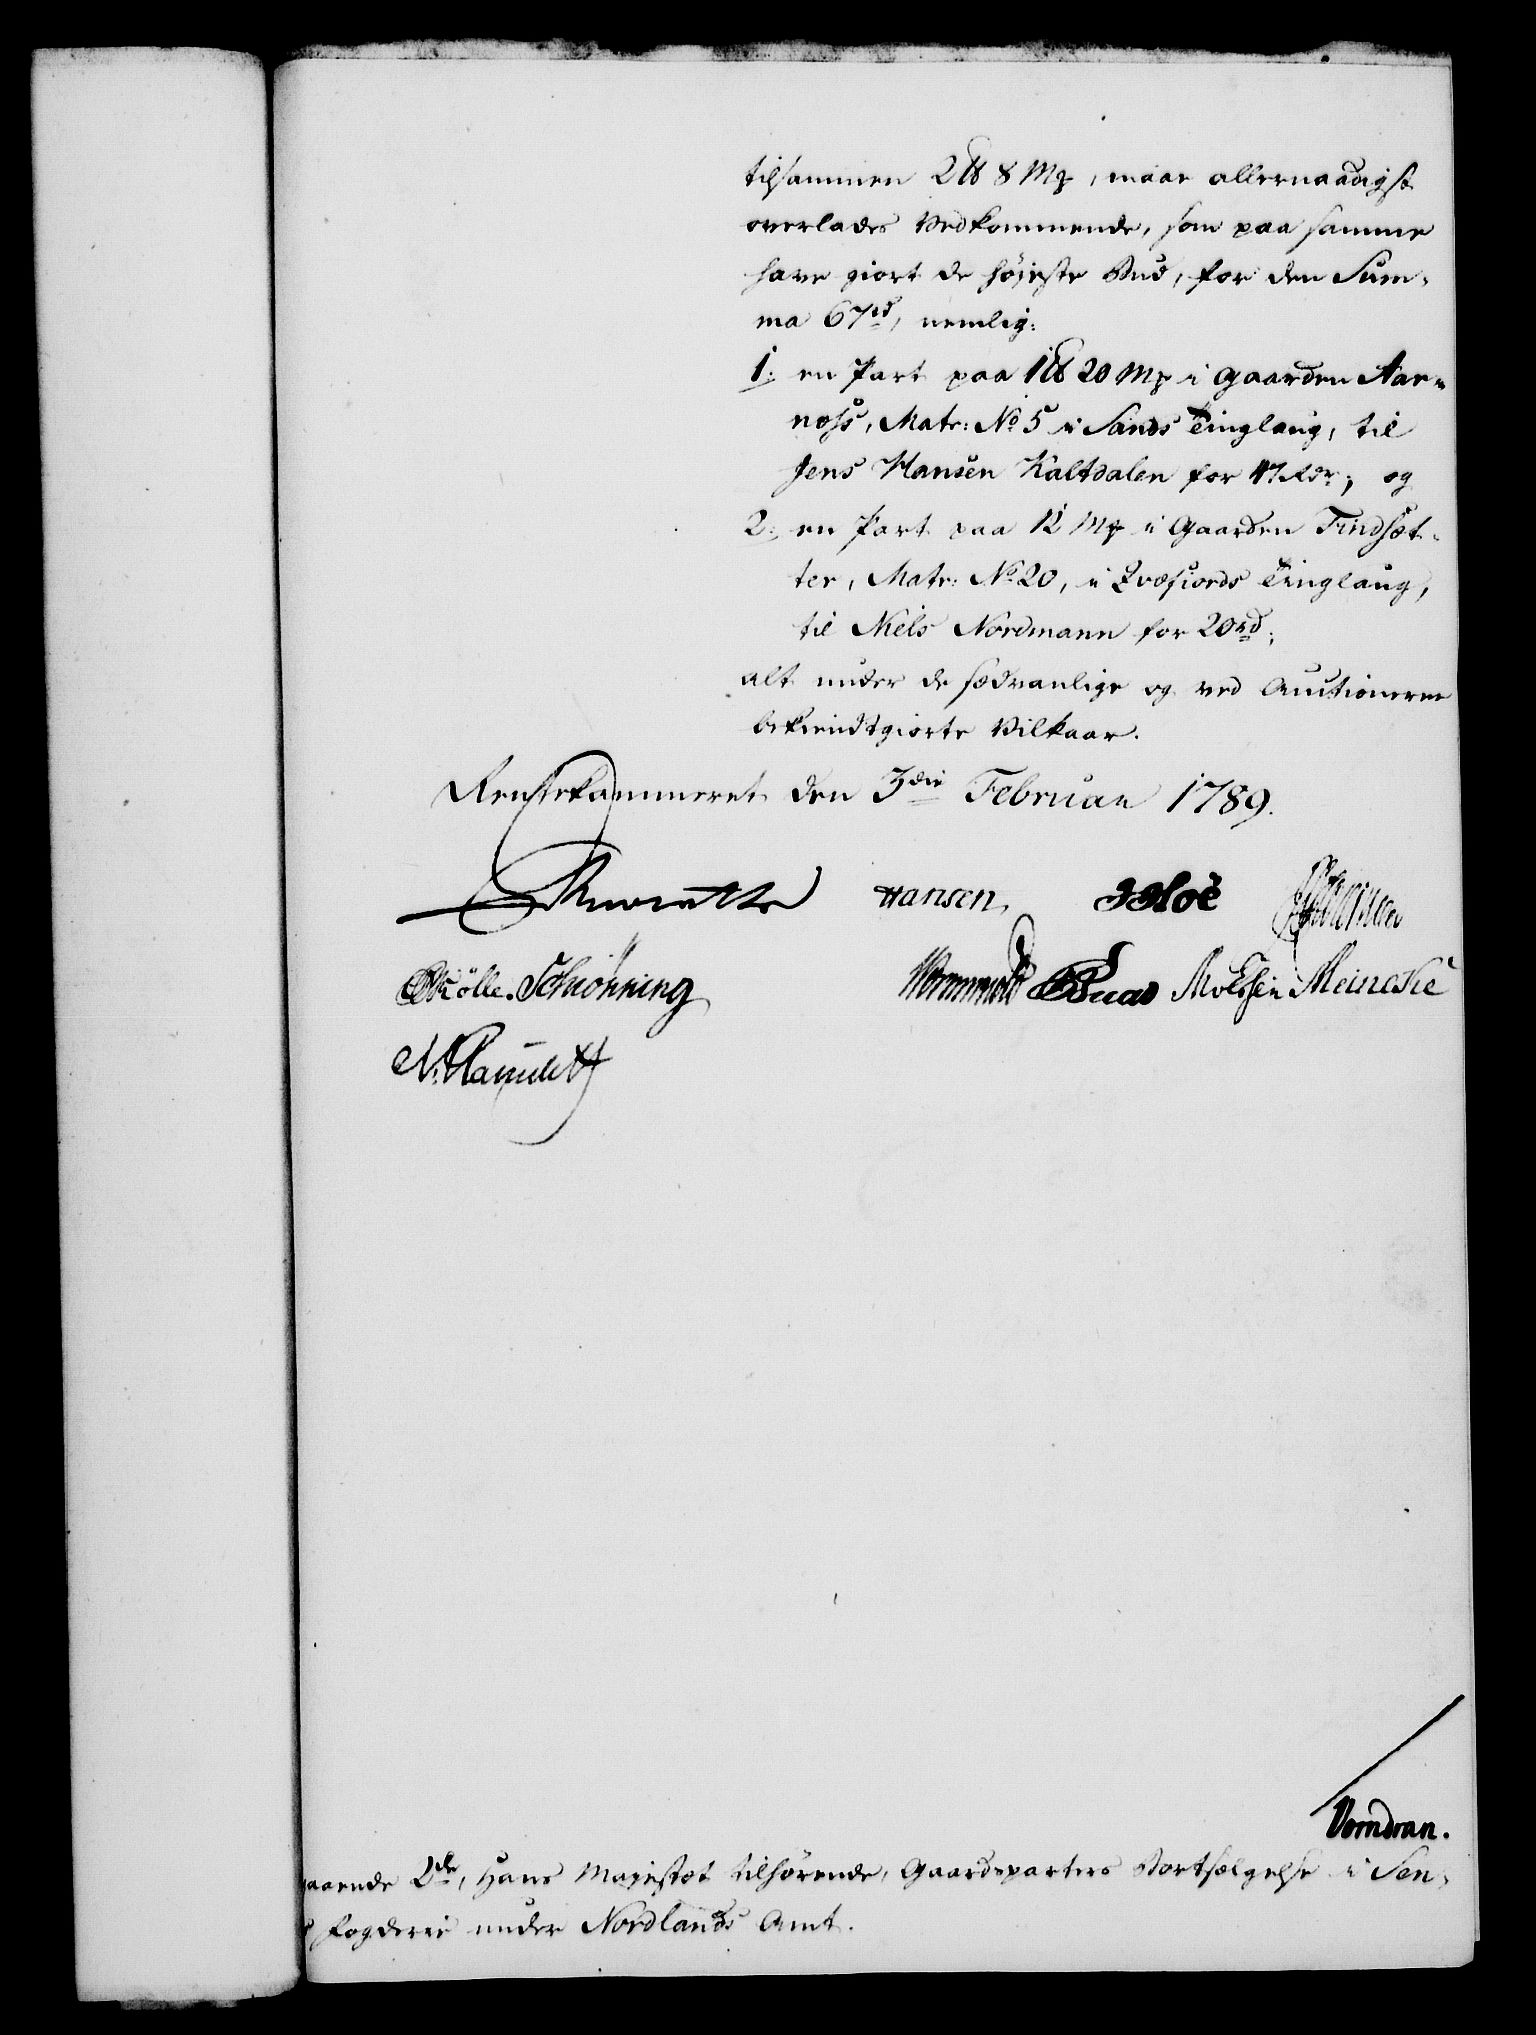 tilsammen 2 ℔ 8 Mꝝ, maae allernaadigst
overlades Vedkommende, som paa samme
have giort de høieste Bud, for den Sum-
ma 67 rd, nemlig:
1. en Part paa 1 ℔ 20 Mꝝ i Gaarden Aar-
næss, Matr: No 5 i Sands Tinglaug, til
Jens Hansen Kaltdalen for 47 Rdr; og
2. en Part paa 12 Mꝝ i Gaarden Findsæt-
ter, Matr: No 20, i Qvæfiords Tinglaug,
til Niels Nordmann for 20 rd;
alt under de sædvanlige og ved Auctionerne
bekiendtgiorte Vilkaar.
Rentekammeret den 3die Februari 1789.
Hansen. Hoë
Kölle. Schiönning Wormskiold Buas Moessin Meincke
Vorndran.
aaende 2de, Hans Majestæt tilhørende, Gaardeparters Bortsælgelse i Sen-
Fogderie under Nordlands Amt.